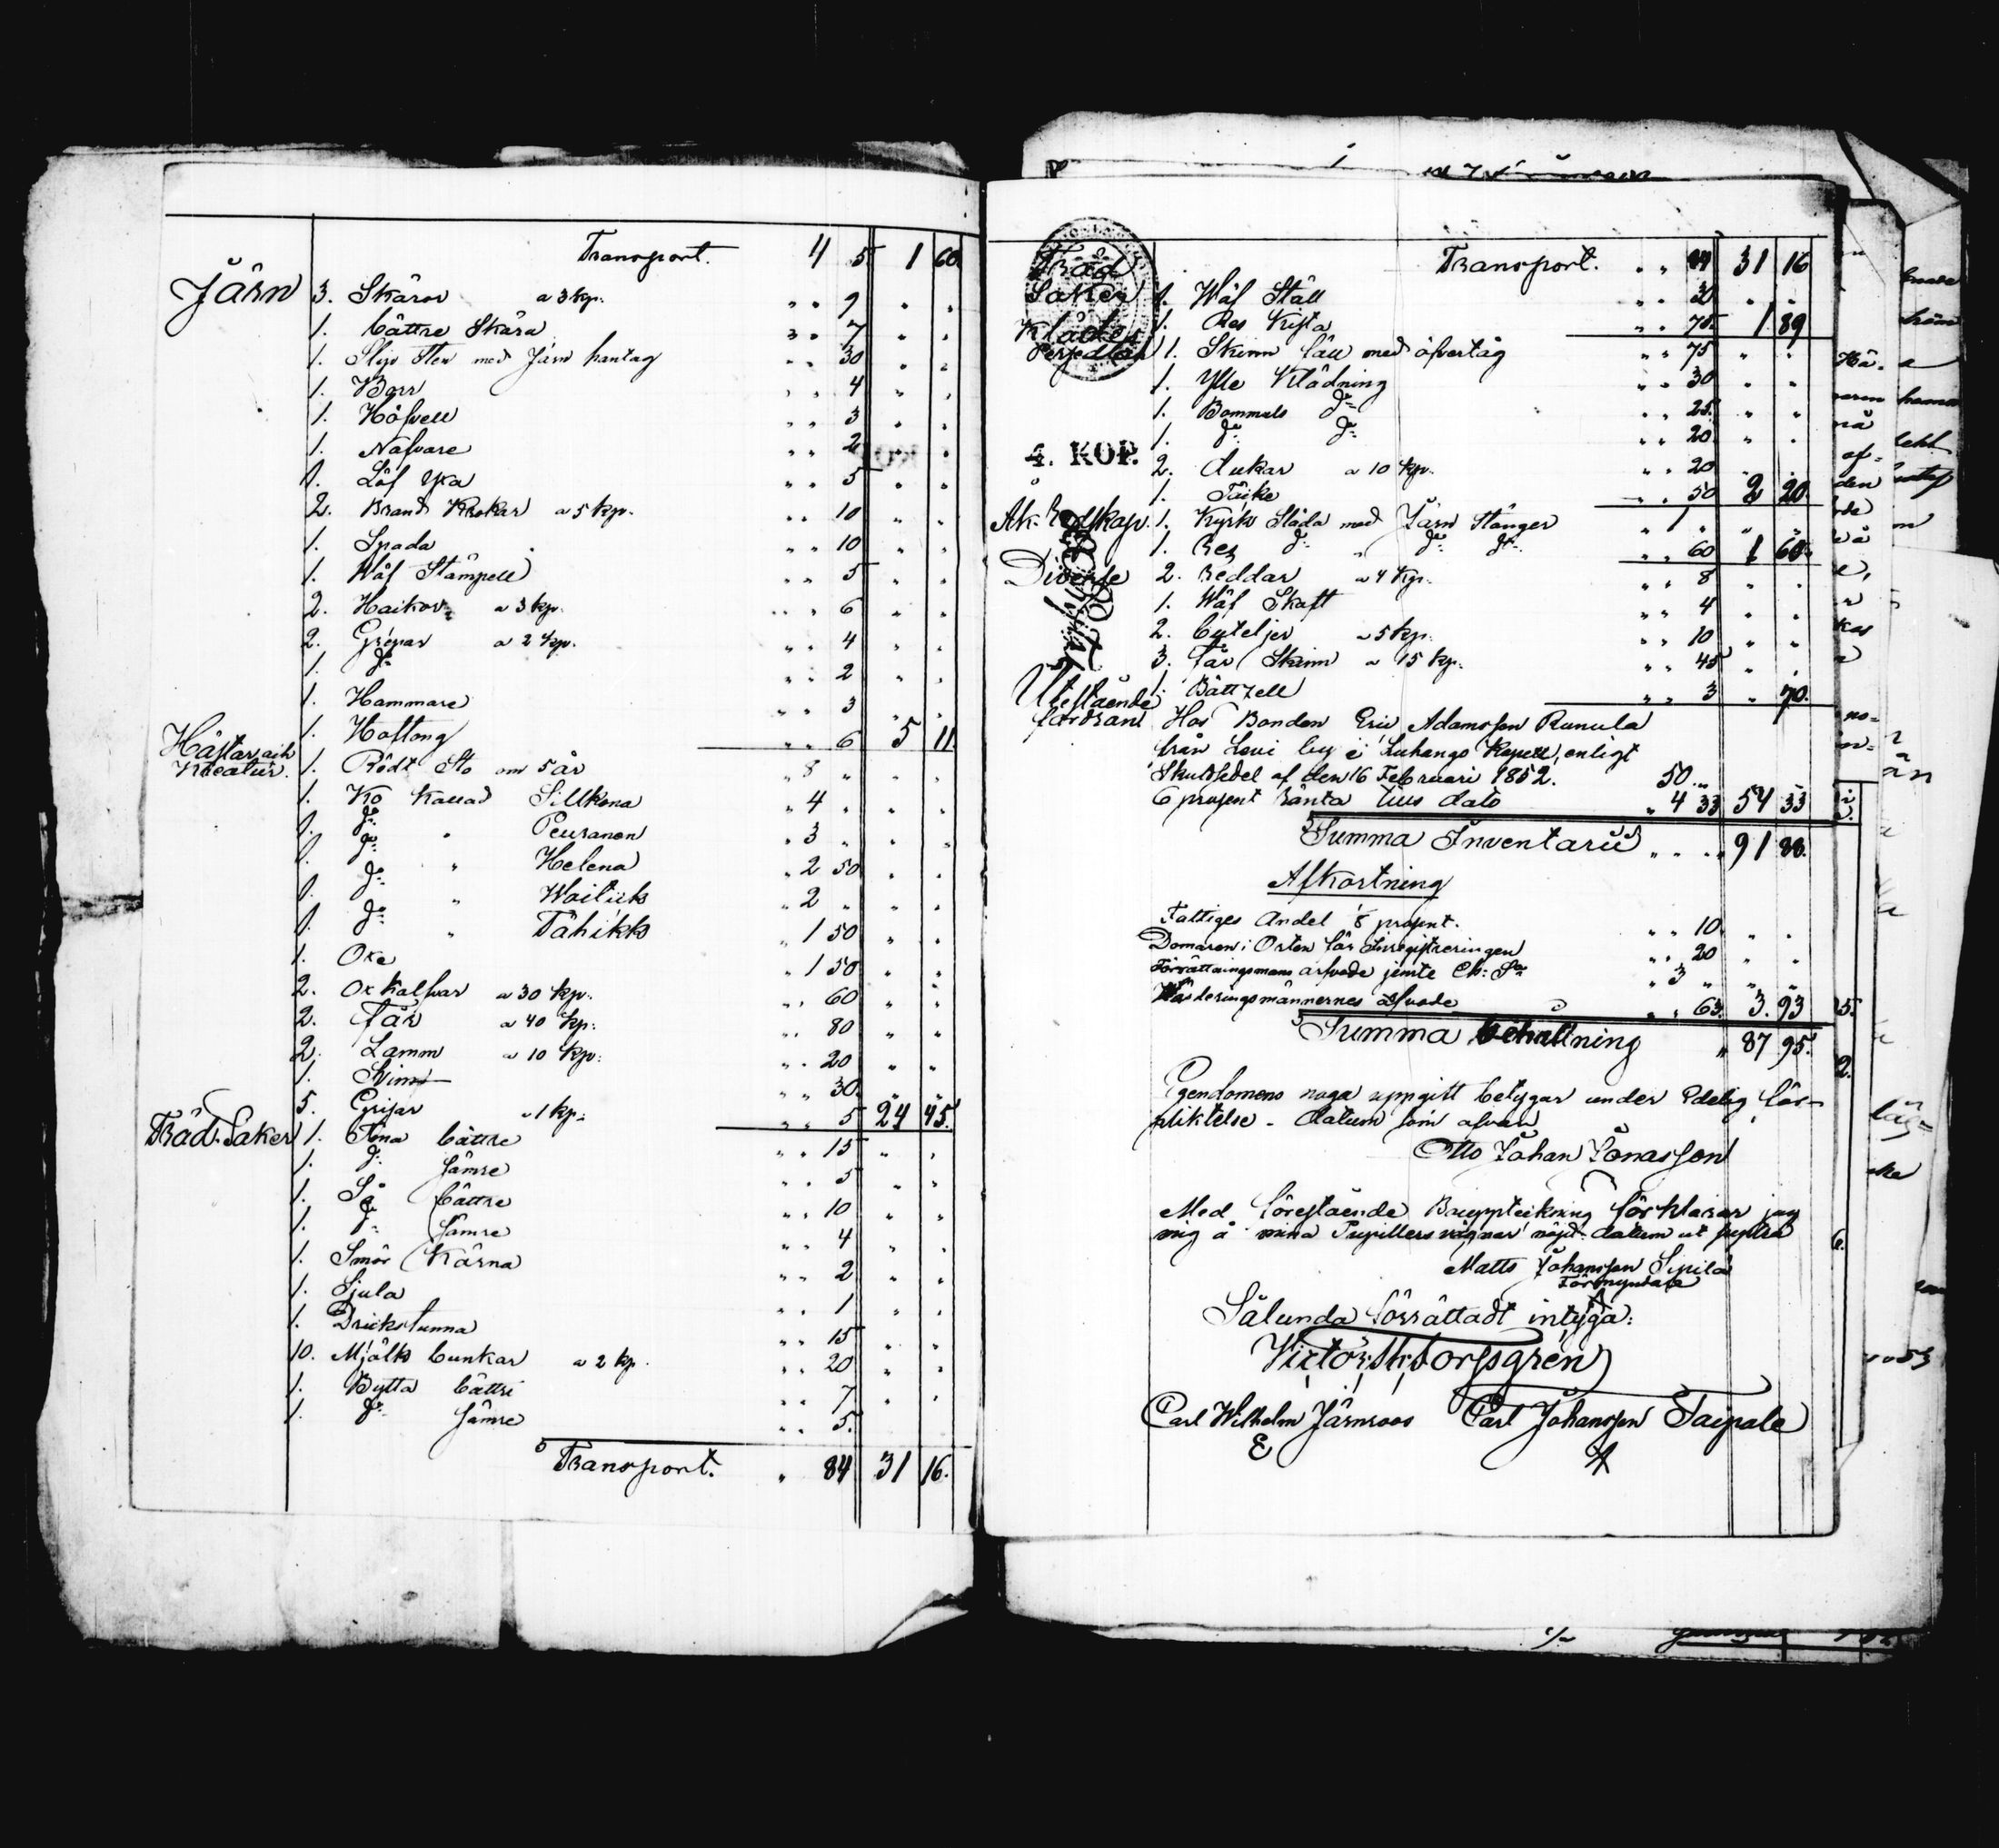 Transport. 4 5 1 60.
Järn 3. Skäror a 3 kp: " " 9 " "
1. bättre Skära " " 7 " "
1. Slip Sten med Järn hantag " " 30 " "
1. Borr " " 4 " "
1. Höfvell " " 3 " "
1. Nafvare " " 2 " "
1. Löf Yxa " " 5 " "
2. Brand Krokar a 5 kp. " " 10 " "
1. Spada " " 10 " "
1. Wäf Stämpell " " 5 " "
2. Haikor a 3 kp. " " 6 " "
2. Grépar a 2 kp. " " 4 " "
1. do " " 2 " "
1. Hammare " " 3 " "
1. Hoftong " " 6 5 11.
Hästar ach
Kreatur. 1. Rödt Sto om 5 år " 8 " " "
1. Ko kallad Sillkena " 4 " " "
1. do " Peuranen " 3 " " "
1. do " Helena " 2 50 " "
1. do " Waituk " 2 " " "
1. do " Tähikk " 1 50 " "
1. Oxe " 1 50 " "
2. Ox kalfvar a 30 kp. " " 60 " "
2. får a 40 kp: " " 80 " "
2. Lamm a 10 kp: " " 20 " "
1. Svin " " 30. " "
5. Grisar a 1 kp: " " 5 24 45.
Träd Saker 1. Tina bättre " " 15 " "
1. do sämre " " 5 " "
1. Så bättre " " 10 " "
1. do sämre " " 4 " "
1. Smör Kärna " " 2 " "
1. Sjula " " 1 " "
1. Drickstunna " " 15 " "
10. Mjölk bunkar a 2 kp. " " 20 " "
1. Bytta bättre " " 7 " "
1. do sämre " " 5.
Transport. " 84 31 16.
Transport. " " 84 31 16
Träd
Saker 1. Wäf Ställ " " 30 " "
1. Res Kista " " 75. 1 89
Kläder
Persedlar 1. Skinn fäll med öfvertåg " " 75 " "
1. Ylle Klädning " " 30 " "
1. Bommuls do " " 25. " "
1. do do " " 20 " "
4. KOP.
2. dukar a 10 kp. " " 20 " "
1. Täcke " " 50 2 20.
Åk-Redskap. 1. Kyrk Släda med Järn Stänger " 1 " " "
1. Res do " do do " " 60 1 60.
Diverse 2. Reddar a 4 kp. " " 8 " "
1. Wäf Skaft " " 4 " "
2. buteljer a 5 kp. " " 10 " "
3. får Skinn a 15 kp. " " 45 " "
1. Bättzell " " 3 " 70.
Utestående
fordran Hos Bonden Eric Adamsson Runula
från Lovi by i Luhango Kapell, enligt
Skuldsedel af den 16 Februari 1852. 50 "
6 prosent Ränta tils dato " 4 33 54 33
Summa Inventarii " " " " 91 88.
Afkortning
Fattiges Andel 1/8 prosent. " " 10 " "
Domaren i Orten för Inregistreringen " " 20 " "
Förrättningsmans arfvode jemte Ch: Sa " 3 " " "
Värderingsmännernes arfvode " " 63. 3. 93
Summa behallning " 87 95.
Egendomens noga uppgift betygar under Edelig för-
pliktelse. datum som ofvan
Otto Johan Jonasson
Med förestående Bouppteikning förklarar jag
mig å mina Pupillers vägnar nöjd. datum ut supra
Matts Johansson Sipilä
Förmyndare
Sålunda förrättadt intyga:
Victor: M: Forssgren
Carl Wilhelm Järnroos Carl Johansson Taipale